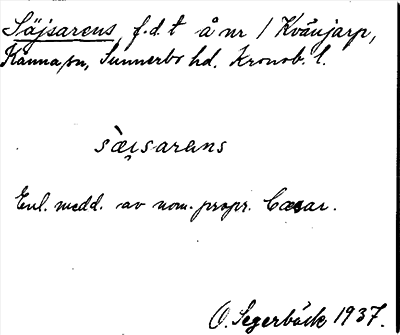 Säjsarens, f.d. t å nr 1 Kvänjarp,
Kånna sn, Sunnerbo hd. Kronob. l.
sæ̀i̯sarens
Enl. medd. av nom. propr. Cæsar.
O. Segerbäck 1937.